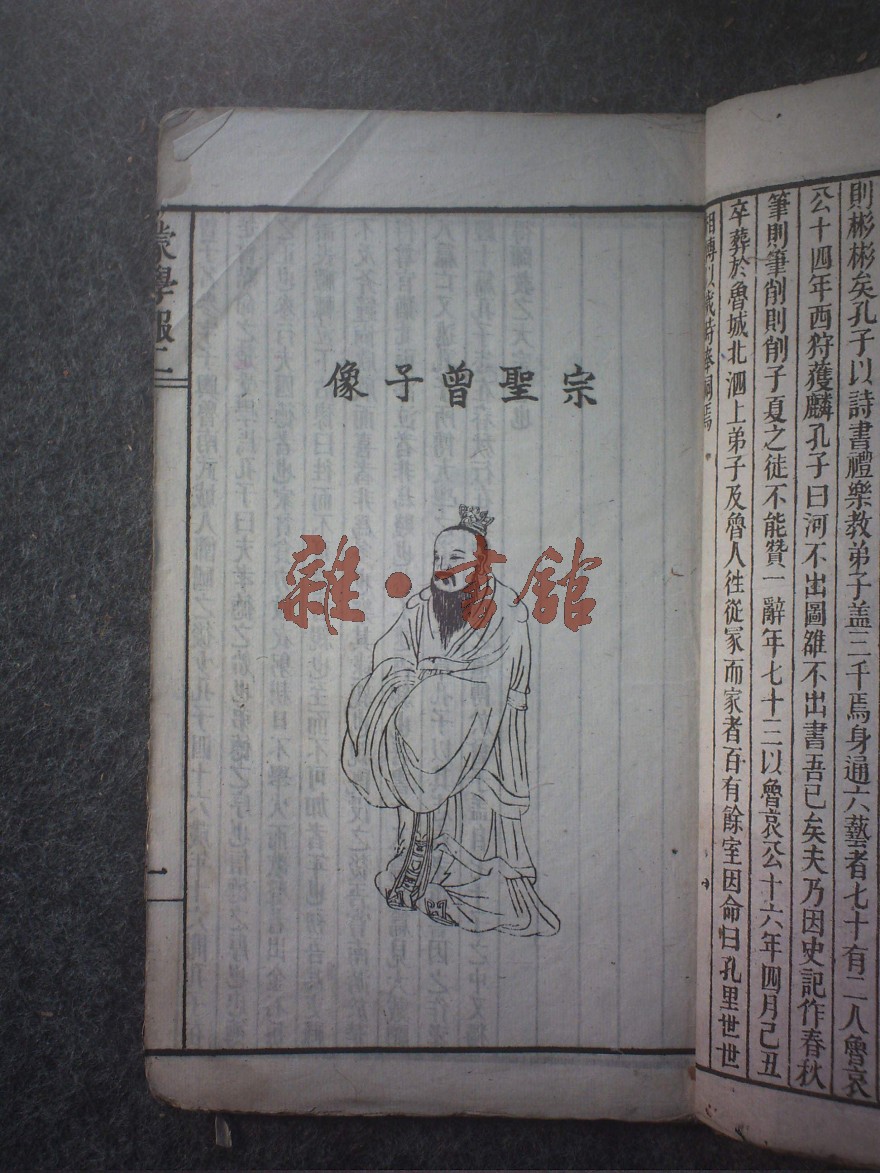 則彬彬矣孔子以詩書禮樂教弟子盖三千焉身通六藝者七十有二人魯哀
公十四年西狩獲麟孔子曰河不出圖雒不出書吾已矣夫乃因史記作春秋
筆則筆削則削子夏之徒不能贊一辭年七十三以魯哀公十六年四月己丑
卒葬於魯城北泗上弟子及魯人徃從冢而家者百有餘室因命曰孔里世世
相傳以歲時奉祠焉
宗聖曾子像
雜·書館
蒙學報二
一